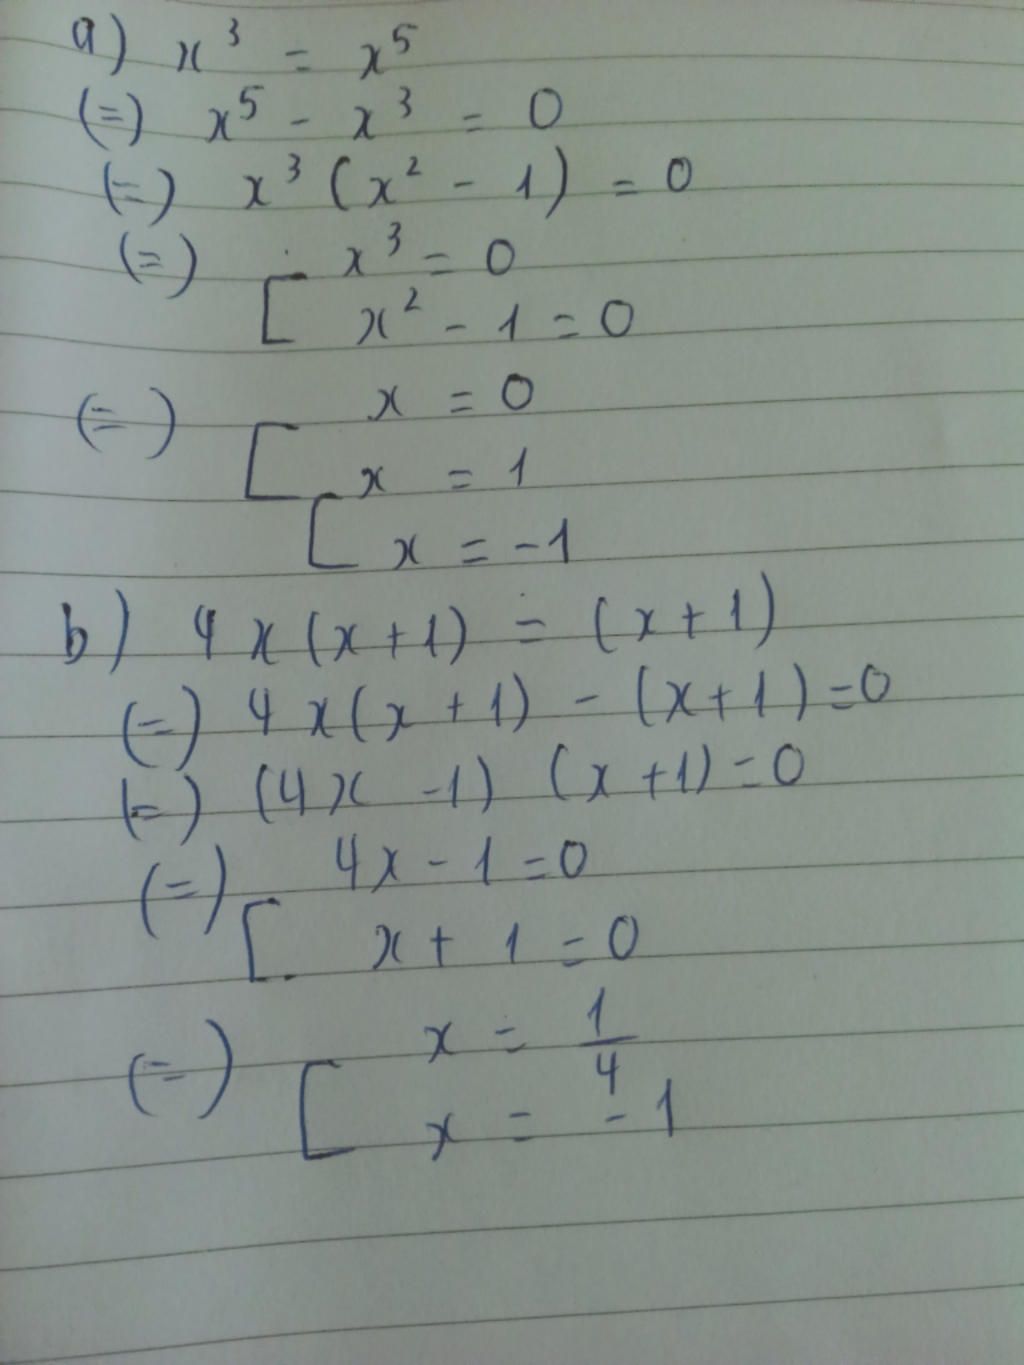 a) x³ = x⁵
(=) x⁵ - x³ = 0
(=) x³ (x² - 1) = 0
(=) [ x³ = 0
x² - 1 = 0
(=) [ x = 0
x = 1
[ x = -1
b) 4x(x+1) = (x+1)
(=) 4x(x+1) - (x+1) = 0
(=) (4x -1) (x+1) = 0
(=) [ 4x - 1 = 0
x + 1 = 0
(=) [ x = 1/4
x = -1